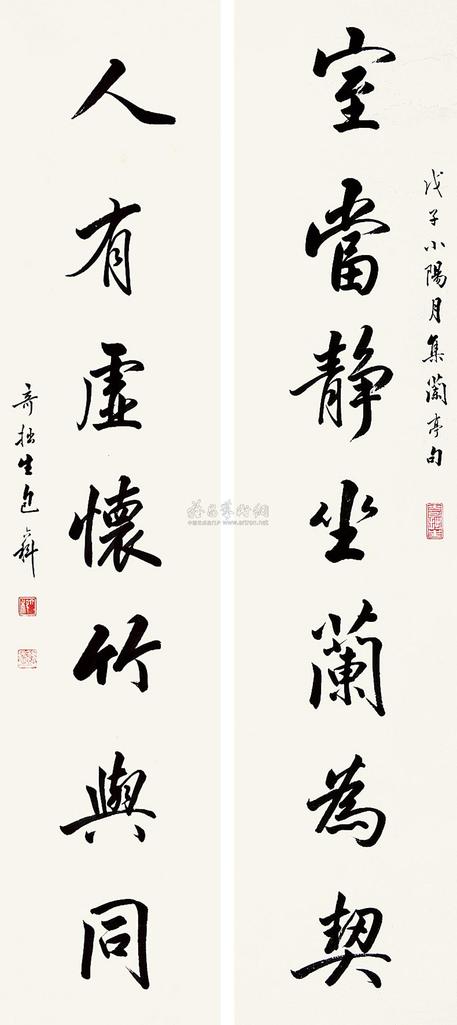 戊子小陽月集蘭亭句
室當靜坐蘭為契
人有虛懷竹與同
奇拙生
雅昌藝術網
www.artron.net